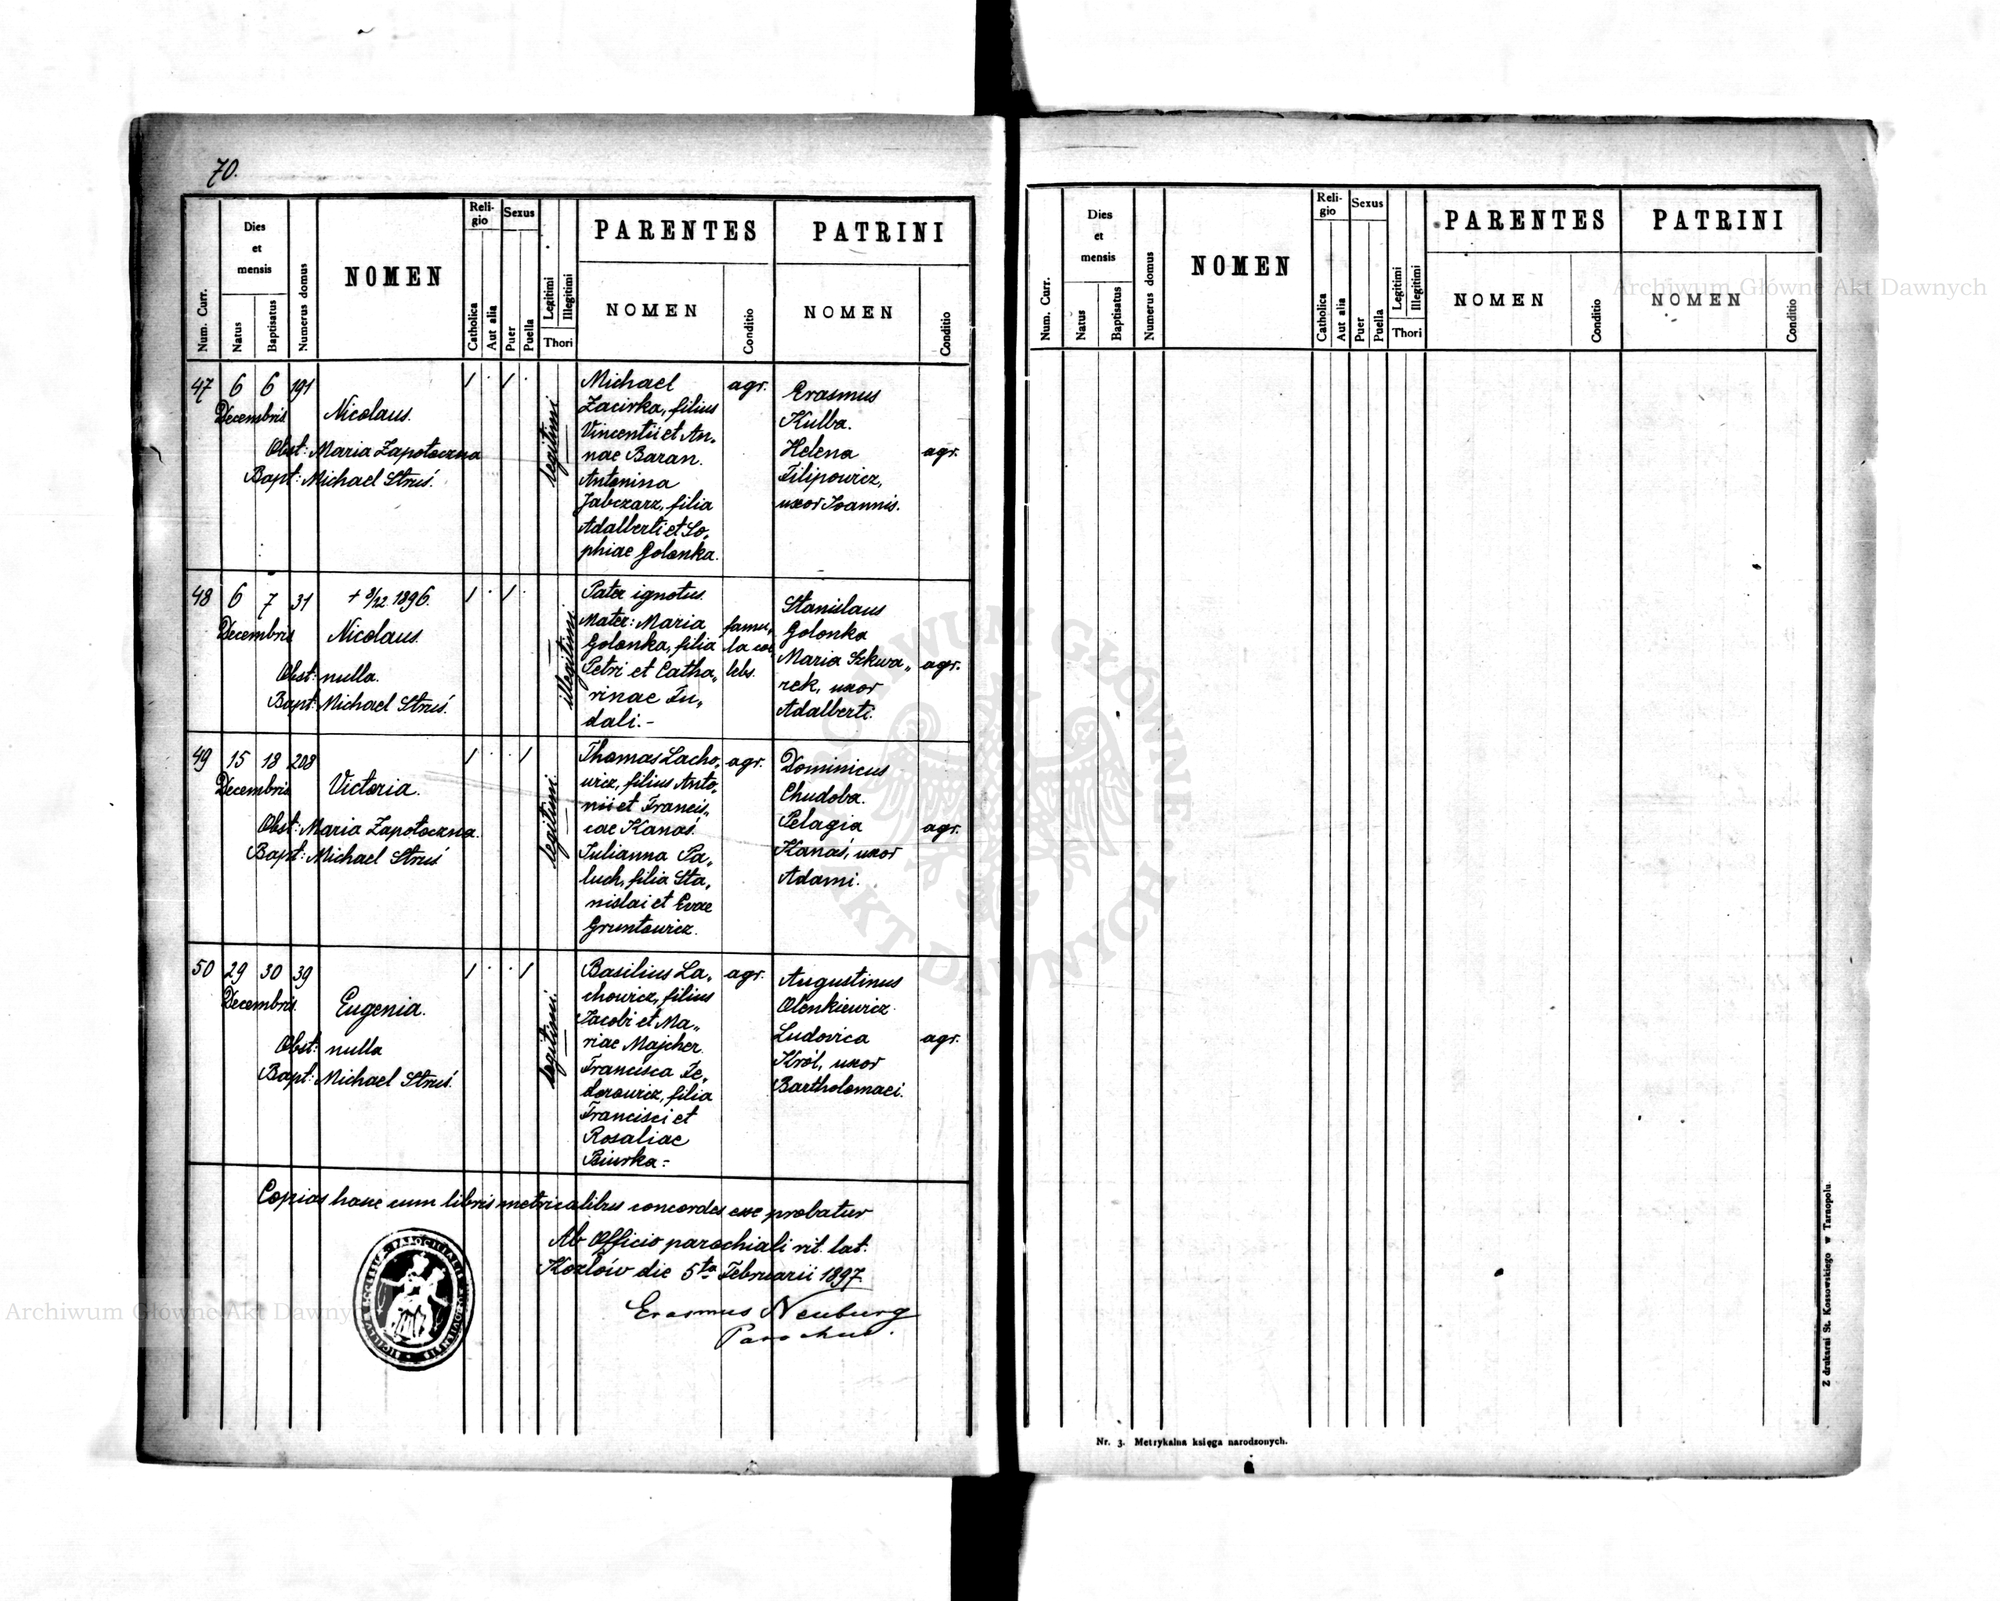 70.
Num. Curr.
Dies et mensis
Natus
Baptisatus
Numerus domus
NOMEN
Religio
Catholica
Aut alia
Sexus
Puer
Puella
Legitimi
Illegitimi
Thori
PARENTES
NOMEN
Conditio
PATRINI
NOMEN
Conditio
47 6 6 191
Decembris
Nicolaus.
Obst: Maria Zapotoczna
Bapt: Michael Struś.
1 . 1 .
legitimi
Michael
Zacirka, filius
Vincentii et An„
nae Baran.
Antonina
Jabczarz, filia
Adalberti et So„
phiae Golonka.
agr.
Erasmus
Kulba.
Helena
Filipowicz,
uxor Ioannis.
agr.
48 6 7 31
Decembris
+ 8/12 1896.
Nicolaus.
Obst: nulla.
Bapt: Michael Struś.
1 . 1 .
illegitimi
Pater ignotus.
Mater: Maria
Golonka, filia
Petri et Catha„
rinae Fu„
dali.-
famu„
la coe
lebs.
Stanislaus
Golonka
Maria Szkwa„
rek, uxor
Adalberti.
agr.
49 15 18 208
Decembris
Victoria.
Obst: Maria Zapotoczna.
Bapt: Michael Struś
1 . . 1
legitimi
Thomas Lacho„
wicz, filius Anto„
nii et Francis„
cae Kanaś.
Iulianna Pa„
luch, filia Sta„
nislai et Evae
Gruntowicz.
agr.
Dominicus
Chudoba.
Pelagia
Kanaś, uxor
Adami.
agr.
50 29 30 39
Decembris.
Eugenia.
Obst: nulla
Bapt: Michael Struś.
1 . . 1
legitimi
Basilius La„
chowicz, filius
Iacobi et Ma„
riae Majcher.
Francisca Fe„
dorowicz, filia
Francisci et
Rosaliae
Biurka:-
agr.
Augustinus
Olenkiewicz.
Ludovica
Król, uxor
Bartholomaei.
agr.
Copias hasce cum libris metricalibus concordes esse probatur
Ab Officio parochiali rit. lat.
Kozłów die 5ta Februarii 1897.
Erasmus Neuburg
Parochus.
Num. Curr.
Dies et mensis
Natus
Baptisatus
Numerus domus
NOMEN
Religio
Catholica
Aut alia
Sexus
Puer
Puella
Legitimi
Illegitimi
Thori
PARENTES
NOMEN
Conditio
PATRINI
NOMEN
Conditio
Nr. 3. Metrykalna księga narodzonych.
Z drukarni St. Kossowskiego w Tarnopolu
Archiwum Główne Akt Dawnych
Archiwum Główne Akt Dawnych
ARCHIWUM GŁÓWNE AKT DAWNYCH